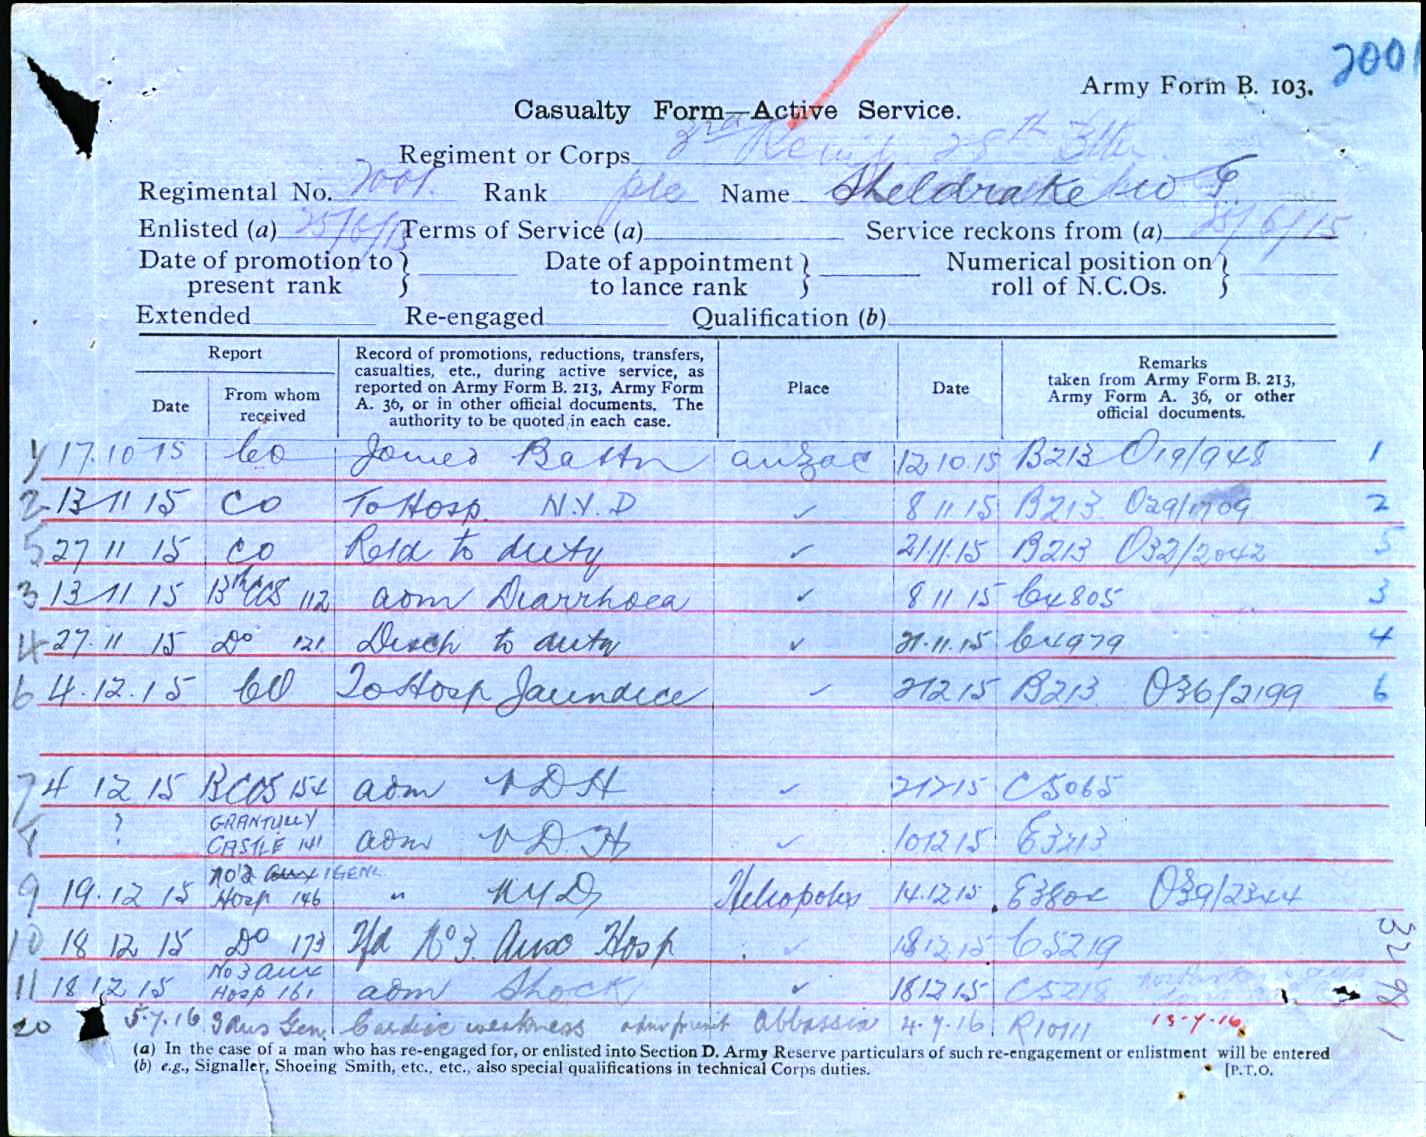 2001
Army Form B. 103.
Casualty Form—Active Service.
Regiment or Corps 2nd Reinf 28th Bttn
Regimental No. 2001. Rank pte Name Sheldrake Geo F.
Enlisted (a) 25/6/15 Terms of Service (a) Service reckons from (a) 25/6/15
Date of promotion to present rank } Date of appointment to lance rank } Numerical position on roll of N.C.Os. }
Extended Re-engaged Qualification (b)
Report
Date From whom received Record of promotions, reductions, transfers, casualties, etc., during active service, as reported on Army Form B. 213, Army Form A. 36, or in other official documents. The authority to be quoted in each case. Place Date Remarks taken from Army Form B. 213, Army Form A. 36, or other official documents.
1 17.10 15 CO Joined Battn anzac 12 10.15 B213 O19/948 1
2 13 11 15 CO To Hosp. N.Y.D ✓ 8 11 15 B213 O29/1709 2
5 27 11 15 CO Retd to duty ✓ 21.11.15 B213 O32/2042 5
3 13 11 15 13th CCS 112 adm Diarrhoea ✓ 8 11 15 C4805 3
4 27.11 15 Do 121 Disch to duty ✓ 21.11.15 C4979 4
6 4.12.15 CO To Hosp Jaundice ✓ 2 12 15 B213 O36/2199 6
7 4 12 15 154 adm V D H ✓ 2 12 15 C5065
8 ? GRANTULLY CASTLE 141 adm V. D. H ✓ 10 12 15 E3213
9 19.12 15 No 2 Aux 1 GENL Hosp 146 " N Y D Heliopolis 14.12.15 E3804 O39/2344
10 18 12 15 Do 173 Tfd No 3. Aux Hosp ✓ 18.12.15 C5219
11 18 12 15 No 3 Aux Hosp 161 adm Shock ✓ 18 12 15 C5218
20 5-7.16 3 Aus Gen Cardiac weakness Abbassia 4.7.16 R10111 13-7-16
(a) In the case of a man who has re-engaged for, or enlisted into Section D. Army Reserve particulars of such re-engagement or enlistment will be entered
(b) e.g., Signaller, Shoeing Smith, etc., etc., also special qualifications in technical Corps duties. [P.T.O.